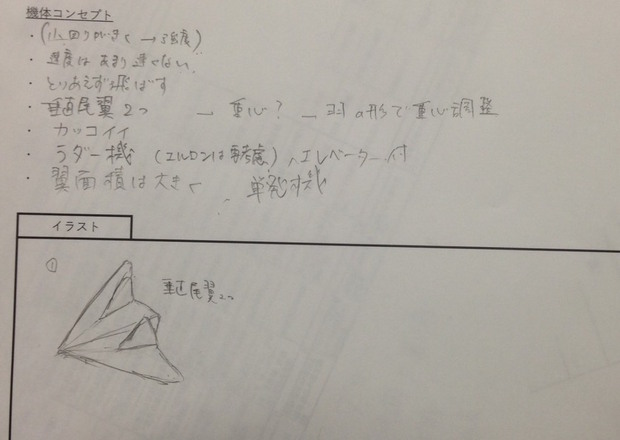 機体コンセプト
・(小回りがきく → 強度)
・速度はあまり速くない
・とりあえず飛ばす
・垂直尾翼2つ → 重心? → 羽の形で重心調整
・カッコイイ
・ラダー機 (エルロンは要考慮)、エレベーター付
・翼面積は大きく 、単発機
イラスト
①
垂直尾翼2つ